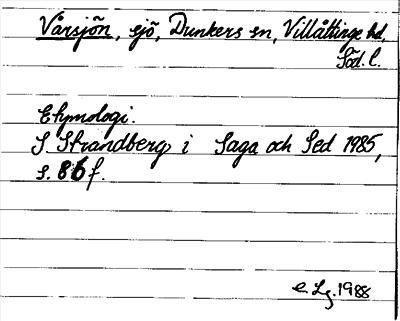 Vårsjön, sjö, Dunkers sn, Villåttinge hd,
Söd. l.
Etymologi.
S. Strandberg i Saga och Sed 1985,
s. 86 f.
e. Lg. 1988